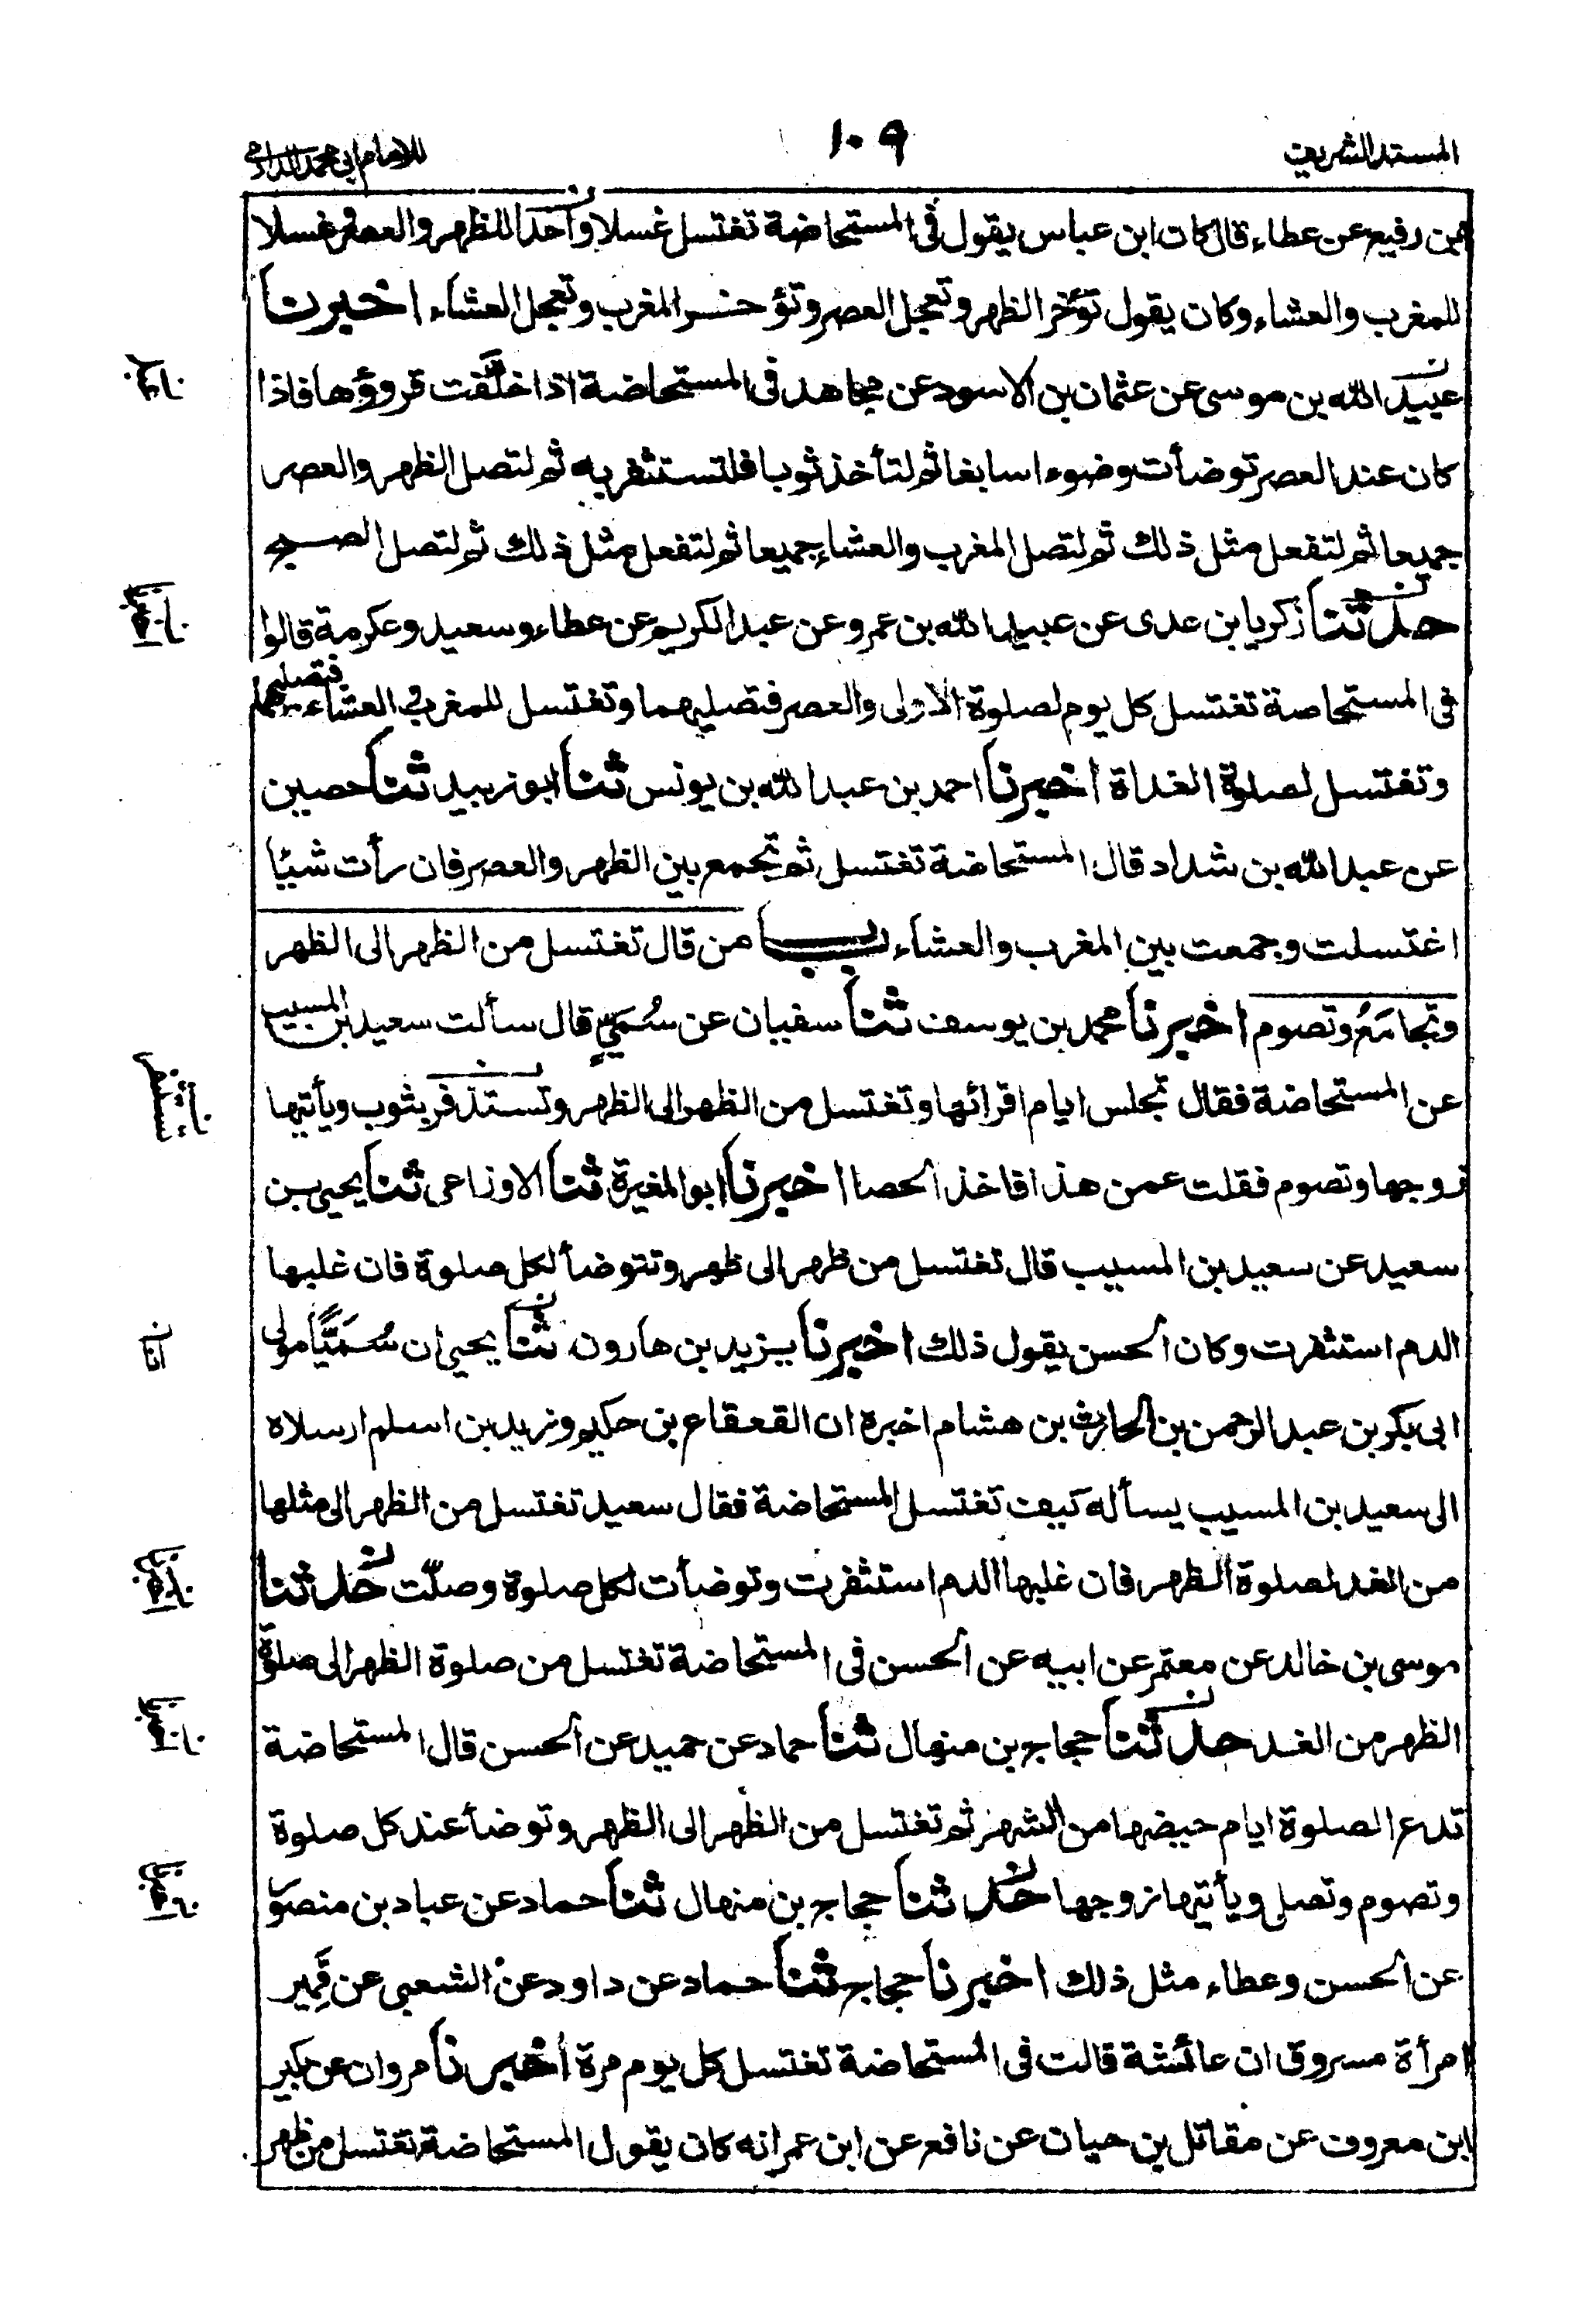 المسند الشريف
١٠٩
للامام ابي محمد الدارمي
بن رفيع عن عطاء قال كان ابن عباس يقول في المستحاضة تغتسل غسلا واحدا للظهر والعصر وغسلا
للمغرب والعشاء وكان يقول تؤخر الظهر وتعجل العصر وتؤخر المغرب وتعجل العشاء اخبرنا
عبيد الله بن موسى عن عثمان بن الاسود عن مجاهد في المستحاضة اذا خلّفت قروؤها فاذا
كان عند العصر توضأت وضوءا سابغا ثم لتأخذ ثوبا فلتستثفر به ثم لتصل الظهر والعصر
جميعا ثم لتفعل مثل ذلك ثم لتصل المغرب والعشاء جميعا ثم لتفعل مثل ذلك ثم لتصل الصبح
حدثنا زكريا بن عدى عن عبيد الله بن عمرو عن عبد الكريم عن عطاء وسعيد وعكرمة قالوا
في المستحاضة تغتسل كل يوم لصلوة الاولى والعصر فتصليهما وتغتسل للمغرب والعشاء فتصليهما
وتغتسل لصلوة الغداة اخبرنا احمد بن عبد الله بن يونس ثنا ابو زبيد ثنا حصين
عن عبد الله بن شداد قال المستحاضة تغتسل ثم تجمع بين الظهر والعصر فان رأت شيئا
اغتسلت وجمعت بين المغرب والعشاء باب من قال تغتسل من الظهر الى الظهر
وتجامَعُ وتصوم اخبرنا محمد بن يوسف ثنا سفيان عن سُمَيٍّ قال سألت سعيد بن المسيب
عن المستحاضة فقال تجلس ايام اقرائها وتغتسل من الظهر الى الظهر وتستذفر بثوب ويأتيها
زوجها وتصوم فقلت عمن هذا فاخذ الحصا اخبرنا ابو المغيرة ثنا الاوزاعي ثنا يحيى بن
سعيد عن سعيد بن المسيب قال تغتسل من ظهر الى ظهر وتتوضأ لكل صلوة فان غلبها
الدم استثفرت وكان الحسن يقول ذلك اخبرنا يزيد بن هارون ثنا يحيى ان سُمَيًّا مولى
ابي بكر بن عبد الرحمن بن الحارث بن هشام اخبره ان القعقاع بن حكيم وزيد بن اسلم ارسلاه
الى سعيد بن المسيب يسأله كيف تغتسل المستحاضة فقال سعيد تغتسل من الظهر الى مثلها
من الغد لصلوة الظهر فان غلبها الدم استثفرت وتوضأت لكل صلوة وصلّت حدثنا
موسى بن خالد عن معتمر عن ابيه عن الحسن في المستحاضة تغتسل من صلوة الظهر الى صلوة
الظهر من الغد حدثنا حجاج بن منهال ثنا حماد عن حميد عن الحسن قال المستحاضة
تدع الصلوة ايام حيضها من الشهر ثم تغتسل من الظهر الى الظهر وتوضأ عند كل صلوة
وتصوم وتصلي ويأتيها زوجها حدثنا حجاج بن منهال ثنا حماد عن عباد بن منصور
عن الحسن وعطاء مثل ذلك اخبرنا حجاج ثنا حماد عن داود عن الشعبي عن قَمِير
امرأة مسروق ان عائشة قالت في المستحاضة تغتسل كل يوم مرة اخبرنا مروان عن بكير
ابن معروف عن مقاتل بن حيان عن نافع عن ابن عمر انه كان يقول المستحاضة تغتسل من ظهر